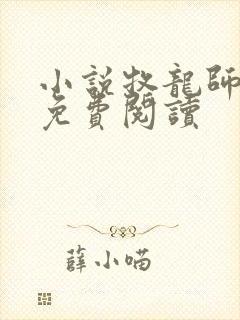 小說牧龍師
免費閱讀
薛小喵